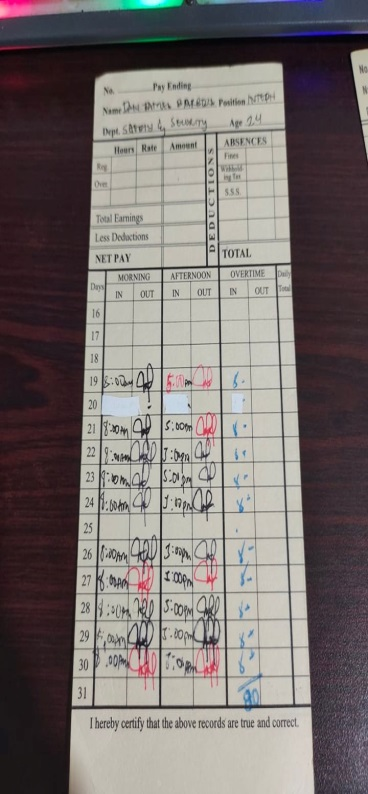 No. Pay Ending
Name Position INTERN
Dept. SAFETY & SECURITY Age 24
Hours Rate Amount DEDUCTIONS ABSENCES
Reg. Fines
Over Withhold-
ing Tax
S.S.S.
Total Earnings
Less Deductions
NET PAY TOTAL
Days MORNING AFTERNOON OVERTIME Daily
IN OUT IN OUT IN OUT Total
16
17
18
19 8:00am 5:00pm 8-
20
21 8:00am 5:00pm 8-
22 8:00am 5:00pm 8-
23 8:00am 5:00pm 8-
24 8:00am 5:00pm 8-
25
26 8:00am 5:00pm 8-
27 8:00am 5:00pm 8-
28 8:00am 5:00pm 8-
29 8:00am 5:00pm 8-
30 8:00am 5:00pm 8-
31 80
I hereby certify that the above records are true and correct.